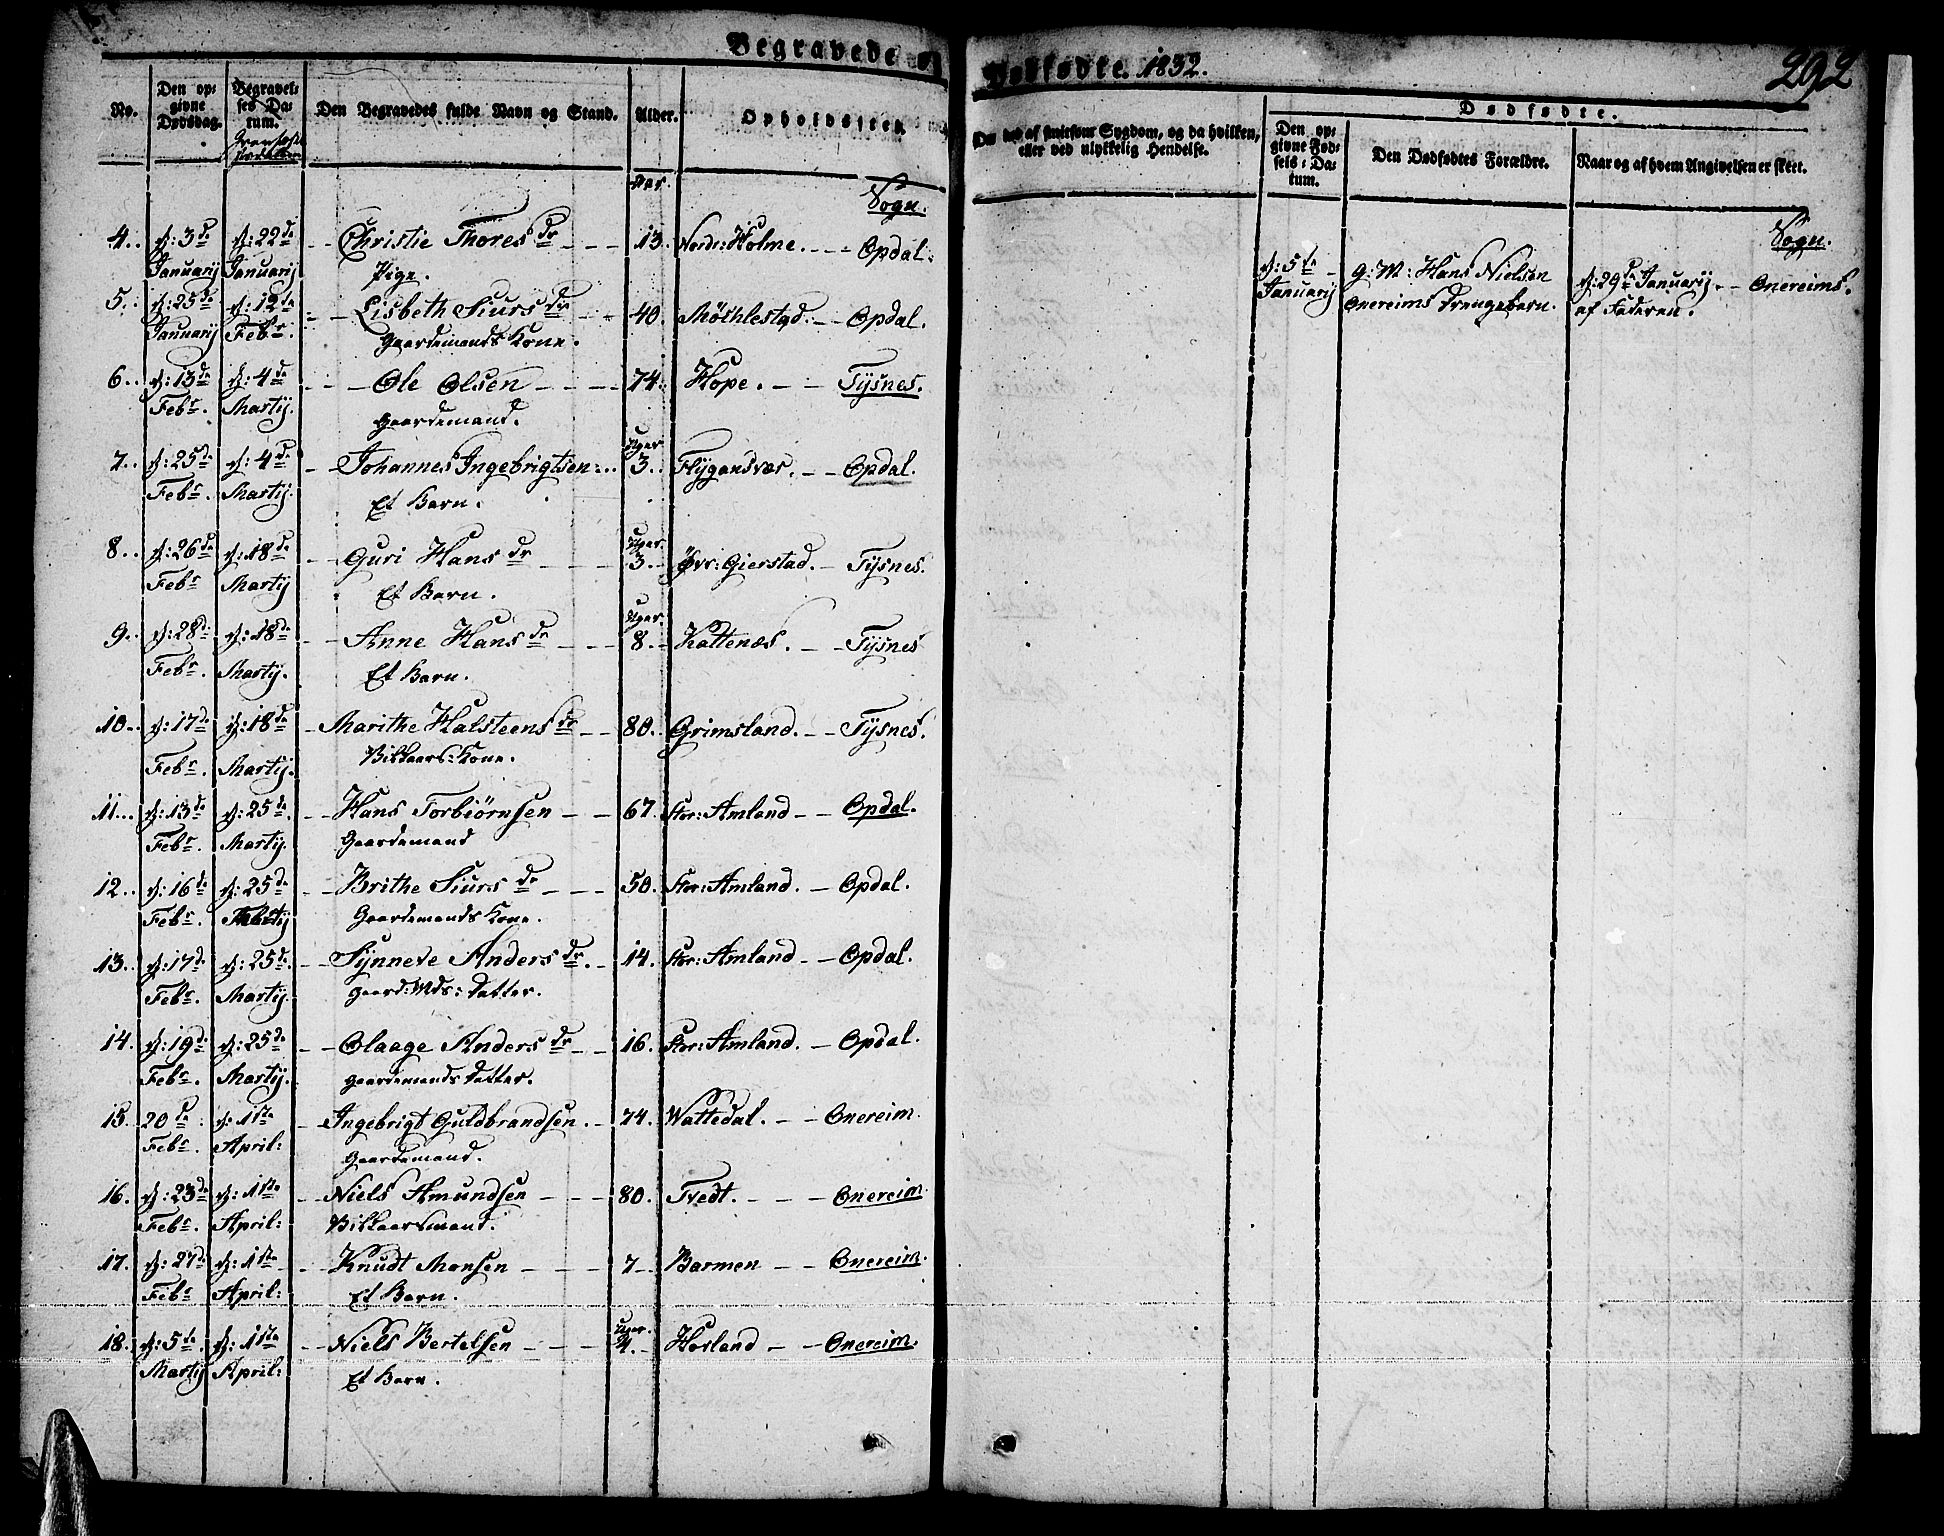 Begravede og
Dødfødte. 1832.
292
No.
Den opgivne Dødsdag.
Begravelses Datum.
Den Begravedes fulde Navn og Stand.
Alder.
Opholdssted.
Om død af smitsom Sygdom, og da hvilken, eller ved ulykkelig Hendelse.
Dødfødte.
Den opgivne Fødsels-Datum.
Den Dødfødtes Forældre.
Naar og af hvem Angivelsen er skeet.
Aar. Sogn.
4.. d: 3de d: 22de Christie Thores dr 13. Nordr: Holme. Opdal.
Januarij Januarij Pige.
5.. d: 25de d: 12te Lisbeth Siurs dr 40. Opdal.
Januarij Febr. Gaardemands Kone.
6.. d: 13de d: 4de Ole Olsen 74. Hope. Tysnes.
Febr. Martij. Gaardemand.
Uger
7.. d: 25de d: 4de Johannes Ingebrigtsen 3.. Flygansvær. Opdal.
Febr. Martij. Et Barn.
Uger.
8.. d: 26de d: 18de Guri Hans dr 3. Øvr: Gierstad. Tysnes.
Febr. Martij Et Barn.
Uger.
9.. d: 28de d: 18de Anne Hans dr 8. Kattenæs. Tysnes
Febr. Martij. Et Barn.
10.. d: 17de d: 18de Marithe Halsteens dr 80. Grimsland. Tysnes.
Febr. Martij. Vilkaars: Kone.
11... d: 13de d: 25de Hans Torbiørnsen 67. Stor: Amland Opdal.
Febr. Martij. Gaardemand
12.. d: 16de d: 25de Brithe Siurs dr 50. Stor: Amland. Opdal.
Febr. Martij Gaardemands Kone.
13.. d: 17de d: 25de Synneve Anders dr. 14. Stor: Amland Opdal.
Febr. Martij. Gaard: Mds: Datter.
14. d: 19de d: 25de Olaage Anders dr 16. Stor: Amland. Opdal.
Febr. Martij. Gaardemands Datter.
15. 20de d: 1ste Ingebrigt Guldbrandsen. 74. Wattedal. Onereim.
Febr. April: Gaardemand.
16. d: 23de d: 1ste Niels Amundsen 80. Tvedt. Onereim.
Febr. April: Vilkaarsmand.
17. d: 27de d: 1ste Knudt Monsen 7 Barmen Onereim.
Febr April: Et Barn.
Uger.
18. d: 5te d: 1ste Niels Bertelsen 4. Horland Onereim.
Martij April: Et Barn.
Sogn.
d: 5te G: M: Hans Nielsen d: 29de Januarij. Onereims.
Januarij Onereims Drengebarn. af Faderen.